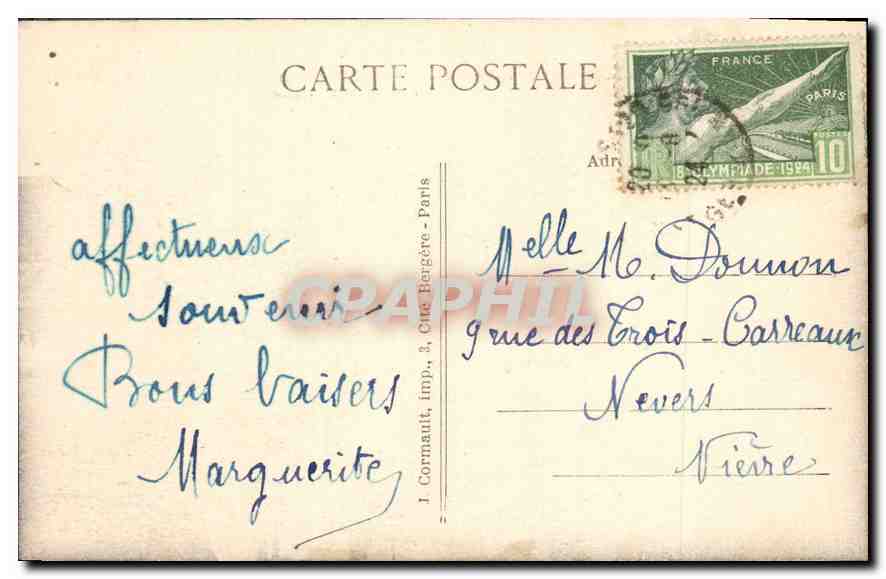 CARTE POSTALE
FRANCE
PARIS
POSTES
8e OLYMPIADE 1924
10
Adre
affectueux
souvenir
Bons baisers
Marguerite
J. Cormault, imp., 3, Cité Bergère - Paris
Melle M. Dounon
9 rue des Trois-Carreaux
Nevers
Nièvre
CPAPHIL